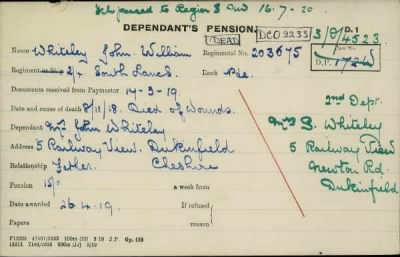 File passed to Region 3 on 16-7-20
DEPENDANT'S PENSION.
(DEAD)
DCO 2233
D.1
3/D/4523
Case No.
D.P. 1724
Name Whiteley John William
Regimental No. 203675
Regiment 2/ South Lancs.
Rank Pte.
Documents received from Paymaster 17-3-19.
Date and cause of death 8/11/18. Died of Wounds.
Dependant Mr. John Whiteley
Address 5 Railway View. Dukinfield
Cheshire
Relationship Father.
Pension 15/- a week from
Date awarded 26.4.19.
If refused
reason
Papers
2nd Dept.
Mrs S. Whiteley
5 Railway View
Newton Rd.
Dukinfield